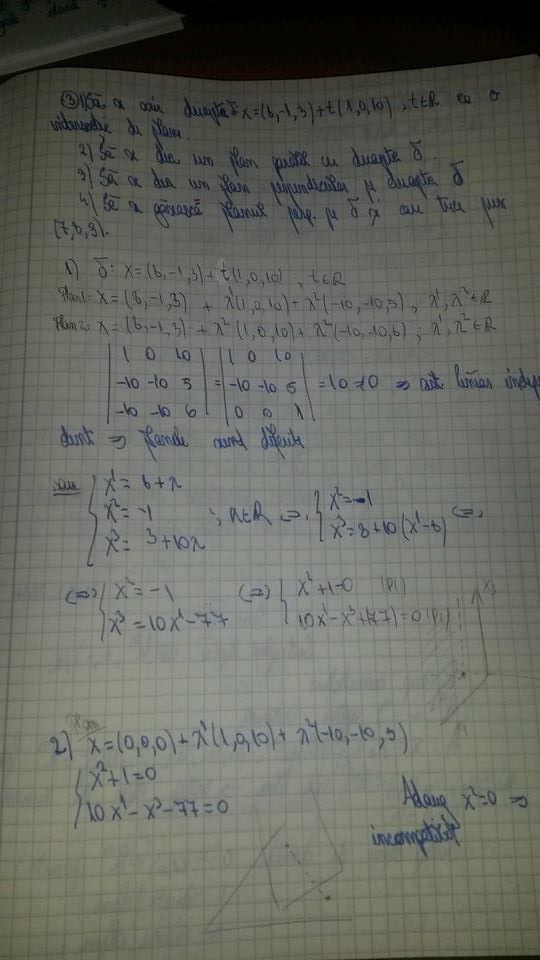 ③ 1) Să se scrie dreapta δ x=(8,-1,3)+t(1,0,10), t∈R ca o
intersecție de plane.
2) Să se dea un plan paralel cu dreapta δ.
3) Să se dea un plan perpendicular pe dreapta δ
4) Să se găsească planul perp. pe δ și care trece prin
(7,0,9).
1) δ: x=(8,-1,3)+t(1,0,10), t∈R
Plan 1: x=(8,-1,3) + λ¹(1,0,10)+ λ²(-10,-10,5), λ¹,λ²∈R
Plan 2: x=(8,-1,3) + λ²(1,0,10)+ λ²(-10,-10,6); λ¹,λ²∈R
|1 0 10| |1 0 10|
|-10 -10 5| = |-10 -10 5| = -10 ≠0 ⇒ sunt liniar indepen
|-10 -10 6| |0 0 1|
dente ⇒ planele sunt diferite
sau { x¹= 8+λ
x²= -1 ; λ∈R ⇔ { x²=-1
x³= 3+10λ x³=3+10(x¹-8) ⇔
⇔ { x²=-1 ⇔ { x²+1=0 (P1)
x³=10x¹-77 10x¹-x³+(-77)=0 (P2)
Plan
2) x=(0,0,0)+λ¹(1,0,10)+λ²(-10,-10,5)
{ x²+1=0
10x¹-x³-77=0
Adaug x²=0 ⇒
incompatibil